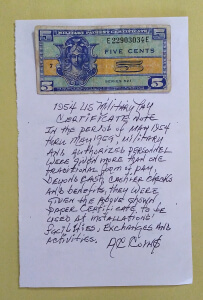 MILITARY PAYMENT CERTIFICATE
E22903034E
FIVE CENTS
7
SERIES 521
5 5
1954 US MILITARY PAY
CERTIFICATE NOTE
IN THE PERIOD OF MAY 1954
THRU MAY 1958, MILITARY
AND AUTHORIZED PERSONNEL
WERE GIVEN MORE THAN ONE
TRADITIONAL FORM OF PAY.
BEYOND CASH, CASHIER CHECKS
AND BENEFITS, THEY WERE
GIVEN THE ABOVE SHOWN
PAPER CERTIFICATE, TO BE
USED AT INSTALLATIONS'
FACILITIES, EXCHANGES AND
ACTIVITIES.